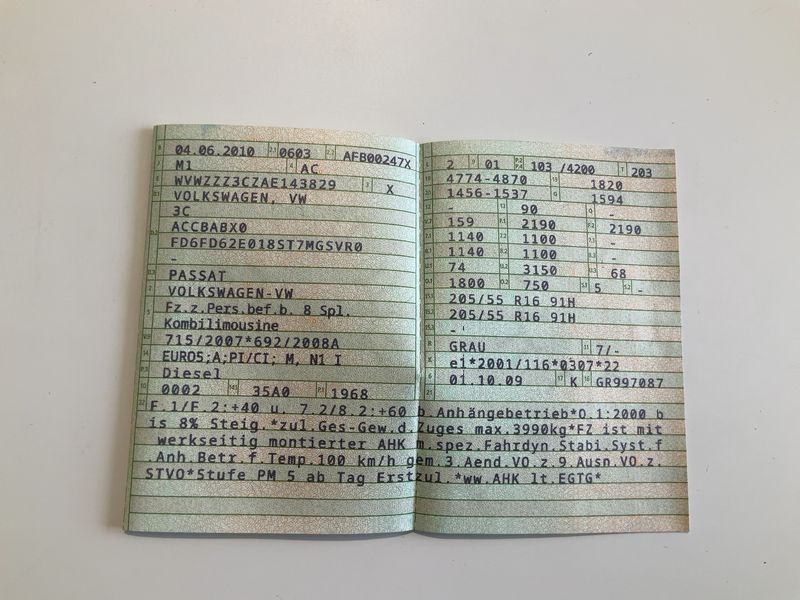 04.06.2010 0603 AFB00247X
M1 AC
WVWZZZ3CZAE143829 X
VOLKSWAGEN, VW
3C
ACCBABX0
FD6FD62E018ST7MGSVR0
-
PASSAT
VOLKSWAGEN-VW
Fz.z.Pers.bef.b. 8 Spl.
Kombilimousine
715/2007*692/2008A
EURO5;A;PI/CI; M, N1 I
Diesel
0002 35A0 1968
2 01 103 /4200 203
4774-4870 1820
1456-1537 1594
- 90 -
159 2190 2190
1140 1100 -
1140 1100 -
74 3150 68
1800 750 5 -
205/55 R16 91H
205/55 R16 91H
-
GRAU 7/-
e1*2001/116*0307*22
01.10.09 K GR997087
F.1/F.2:+40 u. 7.2/8.2:+60 b.Anhängebetrieb*O.1:2000 b
is 8% Steig.*zul.Ges-Gew.d.Zuges max.3990kg*FZ ist mit
werkseitig montierter AHK m.spez.Fahrdyn.Stabi.Syst.f
Anh.Betr.f.Temp.100 km/h gem.3.Aend.VO.z.9.Ausn.VO.z.
STVO*Stufe PM 5 ab Tag Erstzul.*ww.AHK lt.EGTG*